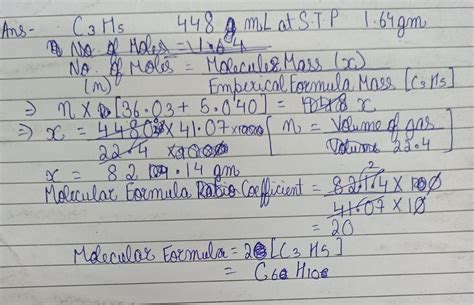 Ans- C3H5 448 mL at S.T.P 1.64gm
No. of Moles = 1.64
No. of Moles = Molecular Mass (x)
(n) Emperical Formula Mass [C3H5]
⇒ n × [36.03 + 5.040] = x
⇒ x = 448 × 41.07 [ n = Volume of gas
22.4 × Volume 22.4 ]
x = 82.14 gm
Molecular Formula Ratio Coefficient = 82.14 × 100
41.07 × 10
2
= 20
Molecular Formula = 2 [C3H5]
= C6H10